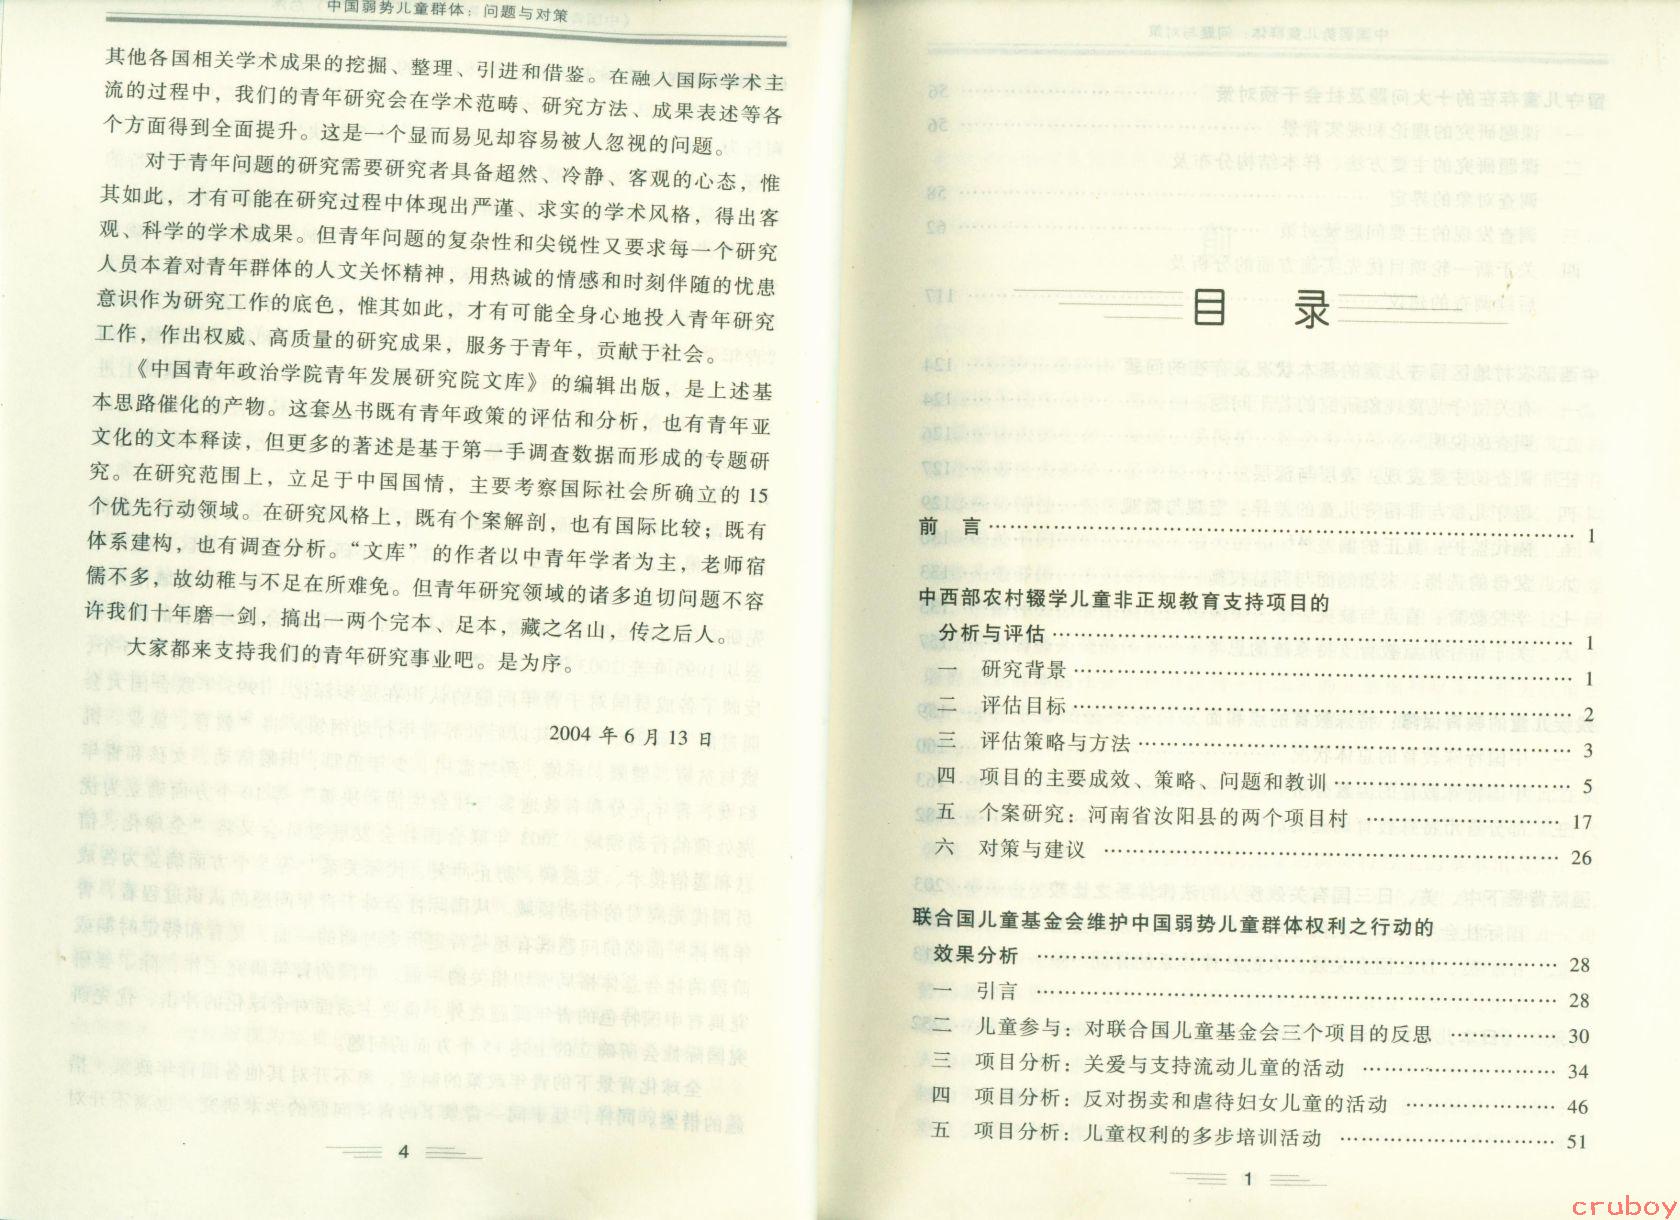 中国弱势儿童群体：问题与对策
其他各国相关学术成果的挖掘、整理、引进和借鉴。在融入国际学术主
流的过程中，我们的青年研究会在学术范畴、研究方法、成果表述等各
个方面得到全面提升。这是一个显而易见却容易被人忽视的问题。
对于青年问题的研究需要研究者具备超然、冷静、客观的心态，惟
其如此，才有可能在研究过程中体现出严谨、求实的学术风格，得出客
观、科学的学术成果。但青年问题的复杂性和尖锐性又要求每一个研究
人员本着对青年群体的人文关怀精神，用热诚的情感和时刻伴随的忧患
意识作为研究工作的底色，惟其如此，才有可能全身心地投入青年研究
工作，作出权威、高质量的研究成果，服务于青年，贡献于社会。
《中国青年政治学院青年发展研究院文库》的编辑出版，是上述基
本思路催化的产物。这套丛书既有青年政策的评估和分析，也有青年亚
文化的文本释读，但更多的著述是基于第一手调查数据而形成的专题研
究。在研究范围上，立足于中国国情，主要考察国际社会所确立的 15
个优先行动领域。在研究风格上，既有个案解剖，也有国际比较；既有
体系建构，也有调查分析。“文库”的作者以中青年学者为主，老师宿
儒不多，故幼稚与不足在所难免。但青年研究领域的诸多迫切问题不容
许我们十年磨一剑，搞出一两个完本、足本，藏之名山，传之后人。
大家都来支持我们的青年研究事业吧。是为序。
2004 年 6 月 13 日
4
目 录
前 言 …… 1
中西部农村辍学儿童非正规教育支持项目的
分析与评估 …… 1
一 研究背景 …… 1
二 评估目标 …… 2
三 评估策略与方法 …… 3
四 项目的主要成效、策略、问题和教训 …… 5
五 个案研究：河南省汝阳县的两个项目村 …… 17
六 对策与建议 …… 26
联合国儿童基金会维护中国弱势儿童群体权利之行动的
效果分析 …… 28
一 引言 …… 28
二 儿童参与：对联合国儿童基金会三个项目的反思 …… 30
三 项目分析：关爱与支持流动儿童的活动 …… 34
四 项目分析：反对拐卖和虐待妇女儿童的活动 …… 46
五 项目分析：儿童权利的多步培训活动 …… 51
1
cruboy